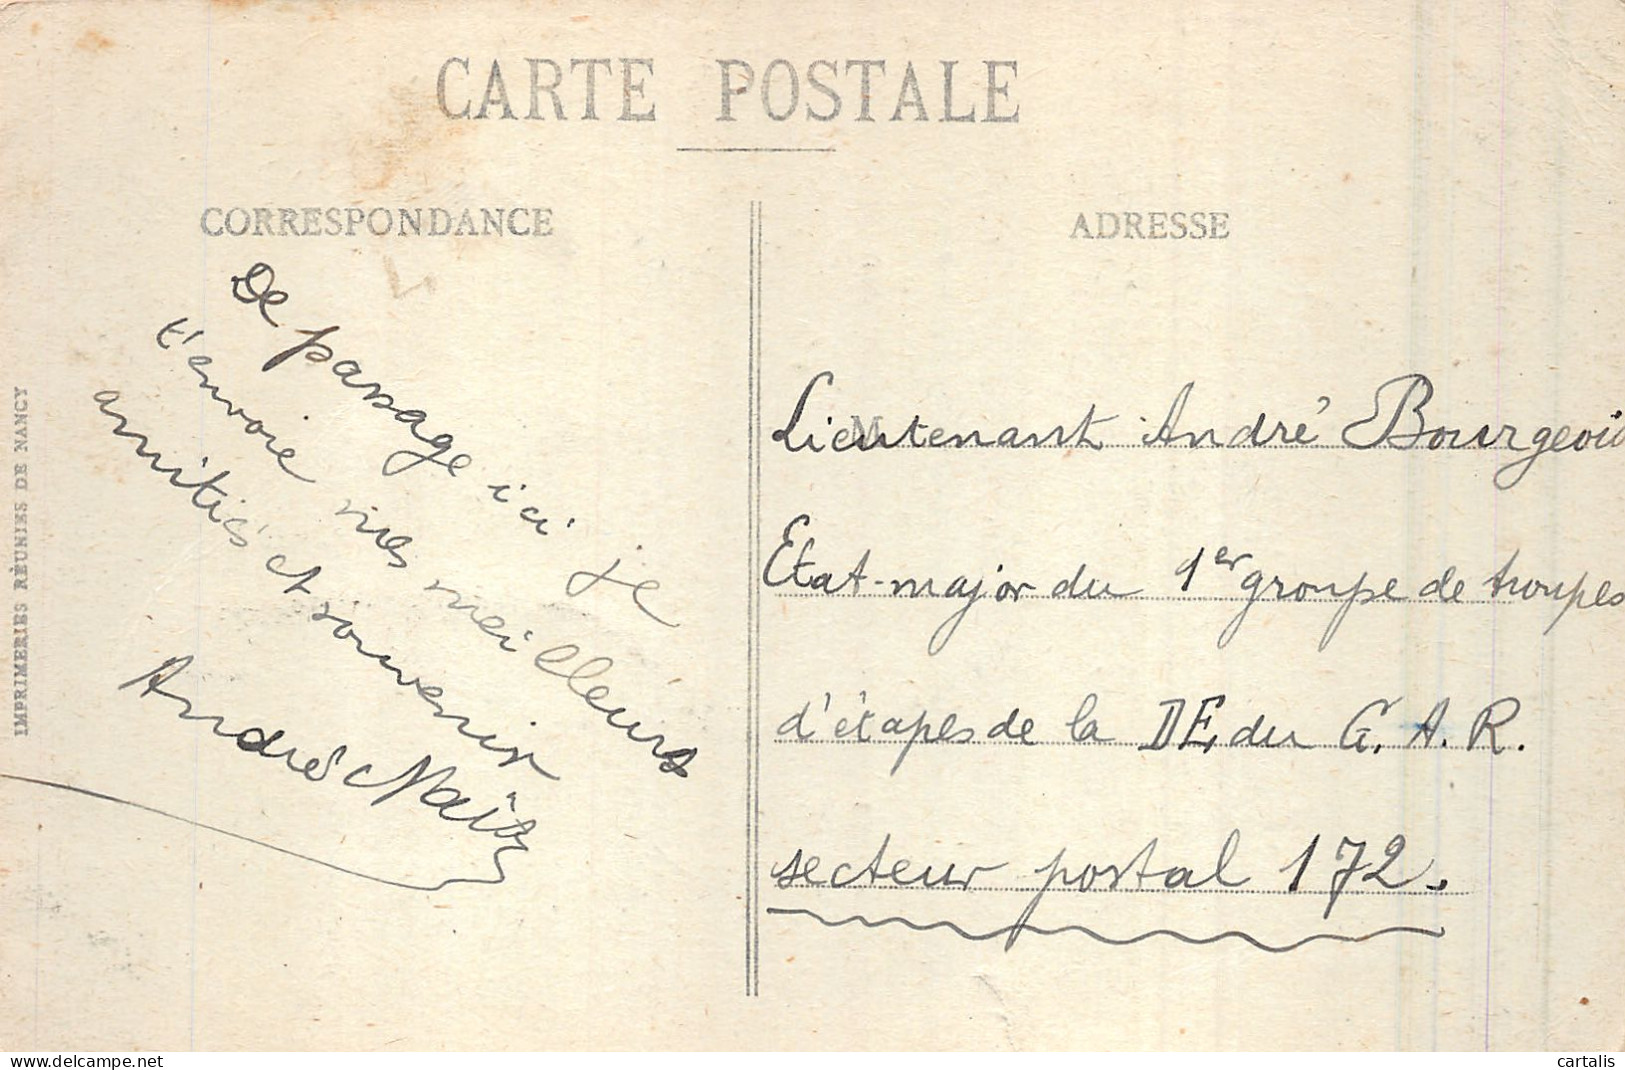 CARTE POSTALE
CORRESPONDANCE
De passage ici je
t'envoie mes meilleurs
amitiés et souvenir
André
ADRESSE
Lieutenant André Bourgeois
Etat-major du 1er groupe de troupes
d'étapes de la DE du G. A. R.
secteur postal 172.
IMPRIMERIES RÉUNIES DE NANCY
cartalis